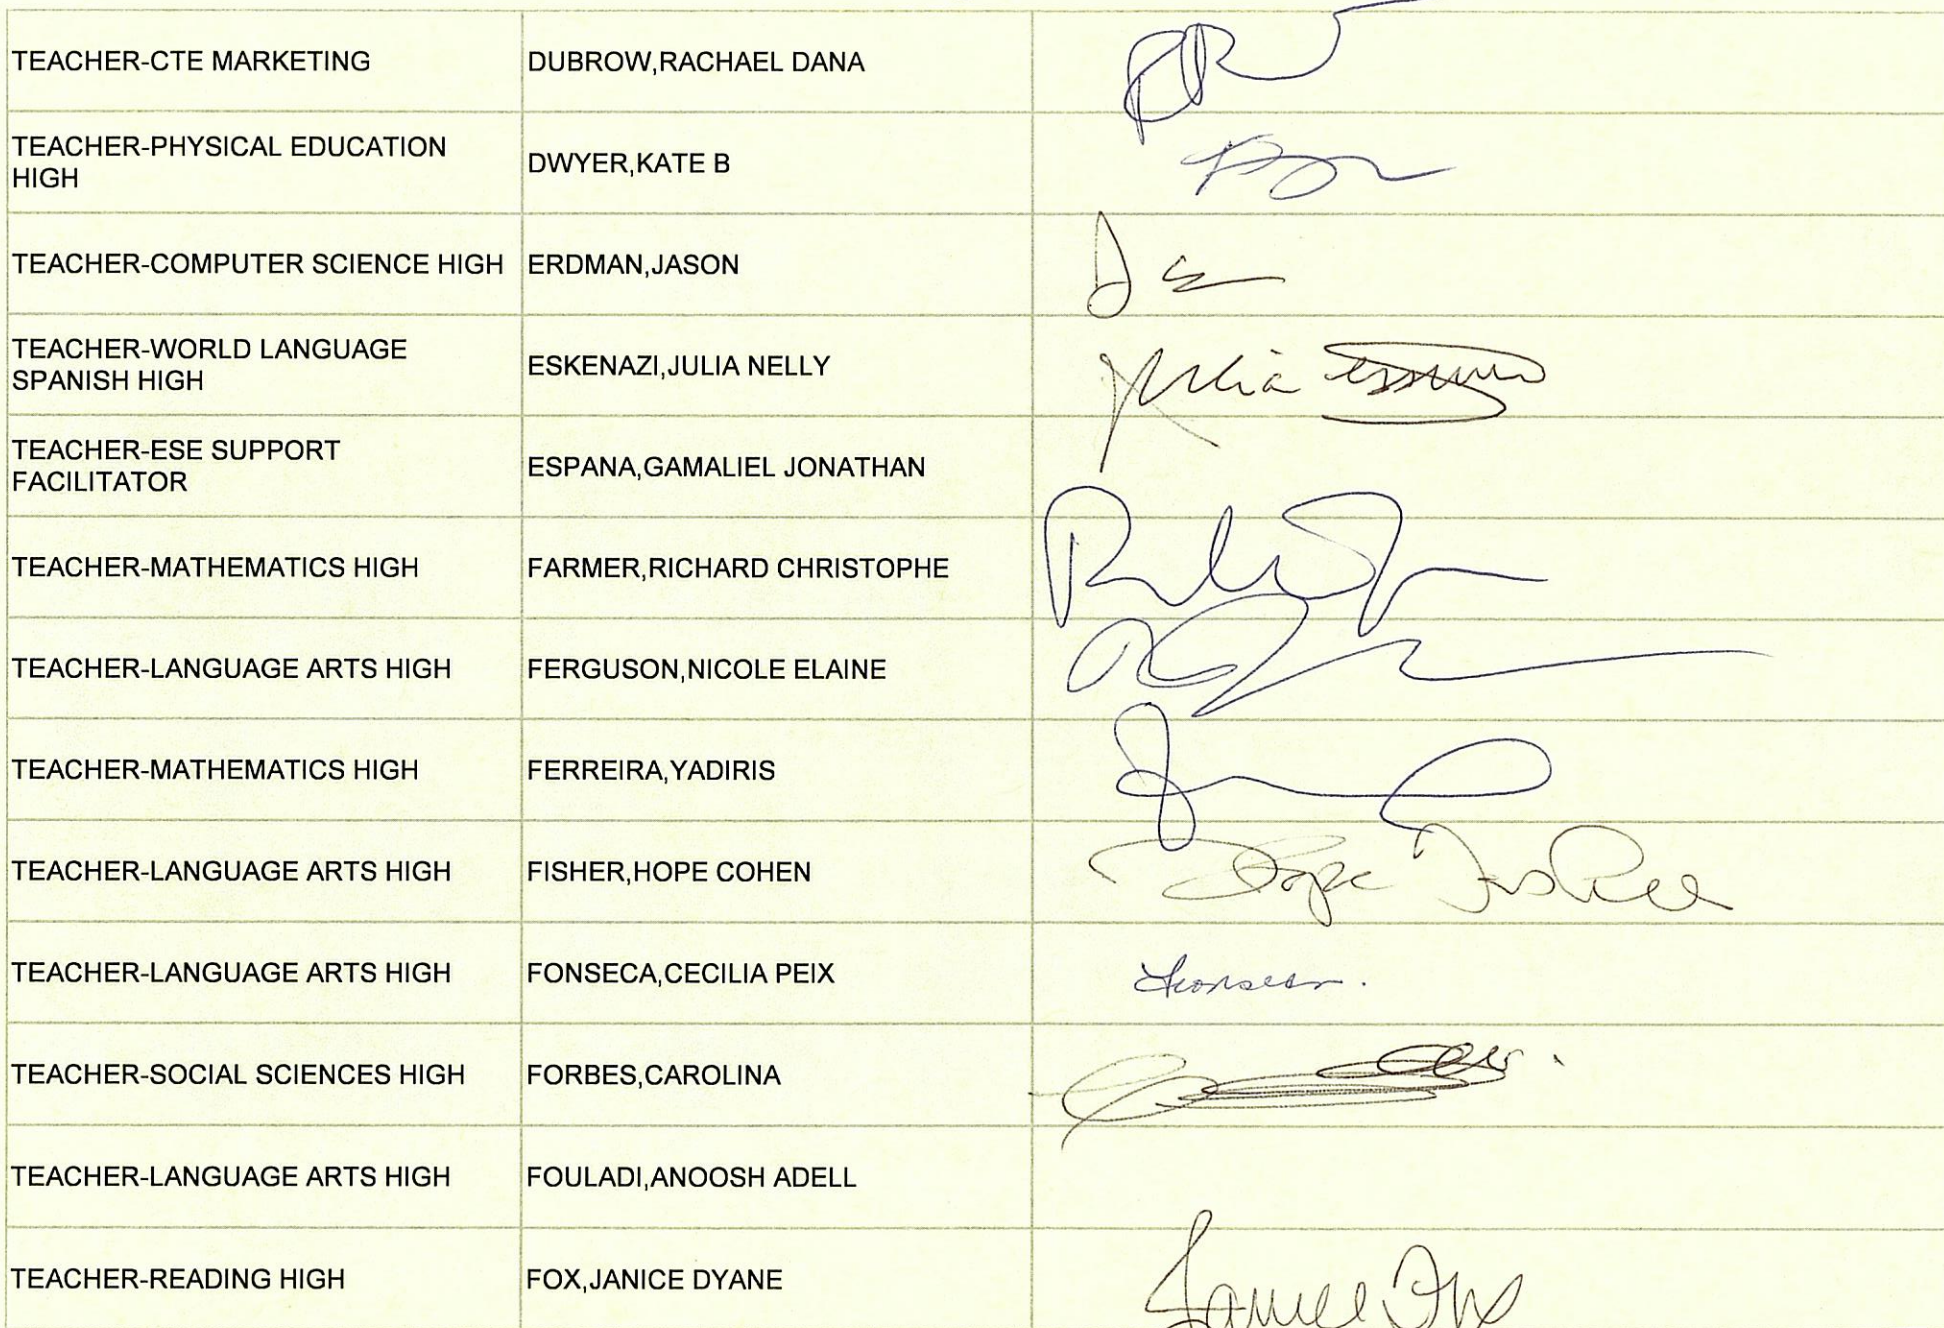 TEACHER-CTE MARKETING DUBROW,RACHAEL DANA
TEACHER-PHYSICAL EDUCATION
HIGH DWYER,KATE B
TEACHER-COMPUTER SCIENCE HIGH ERDMAN,JASON
TEACHER-WORLD LANGUAGE
SPANISH HIGH ESKENAZI,JULIA NELLY Julia
TEACHER-ESE SUPPORT
FACILITATOR ESPANA,GAMALIEL JONATHAN
TEACHER-MATHEMATICS HIGH FARMER,RICHARD CHRISTOPHE
TEACHER-LANGUAGE ARTS HIGH FERGUSON,NICOLE ELAINE
TEACHER-MATHEMATICS HIGH FERREIRA,YADIRIS
TEACHER-LANGUAGE ARTS HIGH FISHER,HOPE COHEN Hope Fisher
TEACHER-LANGUAGE ARTS HIGH FONSECA,CECILIA PEIX
TEACHER-SOCIAL SCIENCES HIGH FORBES,CAROLINA
TEACHER-LANGUAGE ARTS HIGH FOULADI,ANOOSH ADELL
TEACHER-READING HIGH FOX,JANICE DYANE Janice Fox